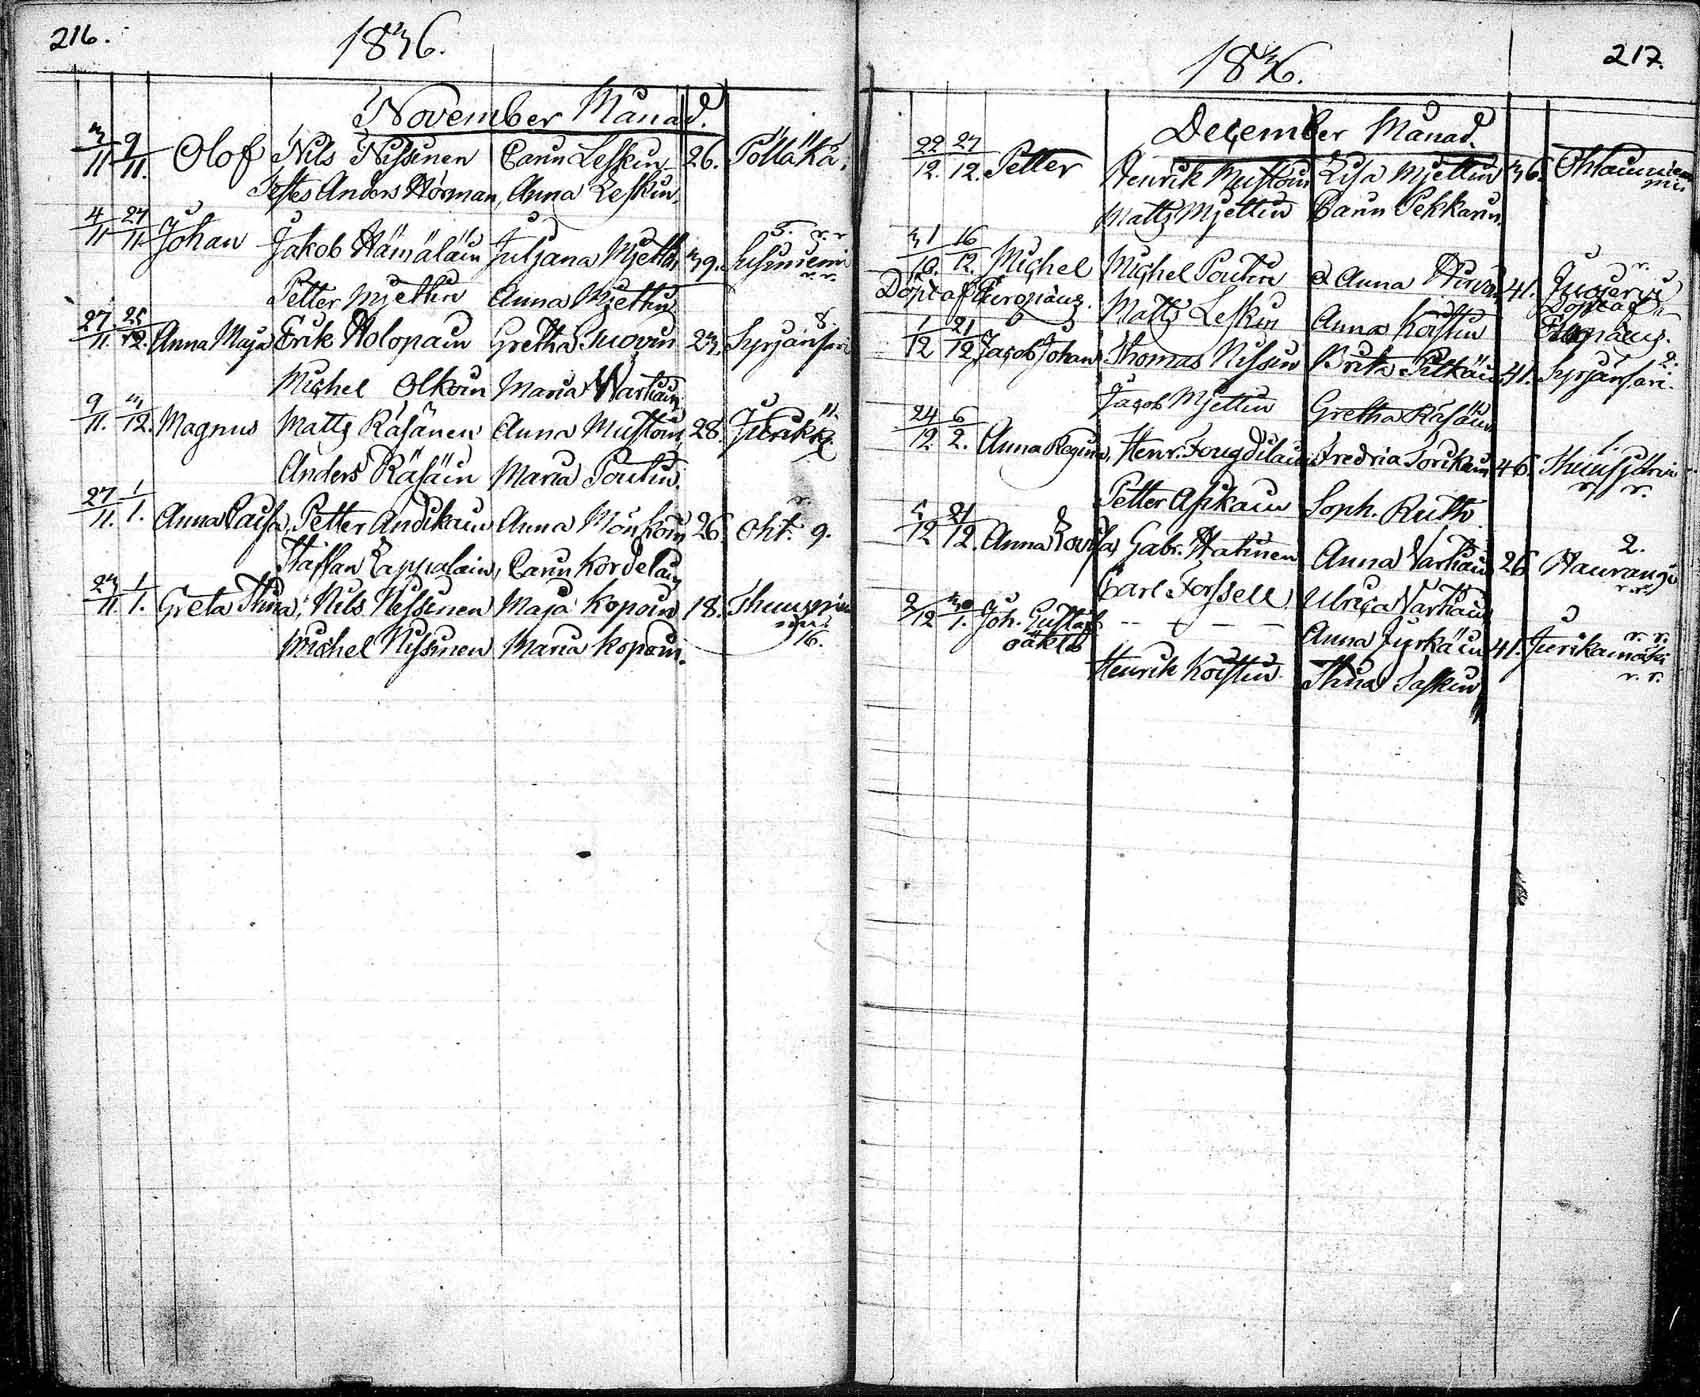 216.
1836.
November Månad.
3/11 9/11. Olof Nils Nissinen Carin Leskin 26. Pölläkä.
Testes Anders Hörman, Anna Leskin.
5. r. r
4/11 27/11 Johan Jakob Hämäläin Juljana Mjettin 39.
r. r.
Petter Mjettin Anna Mjettin
8
27/11 25/12. Anna Maja Erik Holopain Gretha Suovin 23. Syrjänsari
Michel Olkoin Maria Wartiain
11.
9/11. 3/12. Magnus Matts Räsänen Anna Mustoin 28.
Anders Räsäin Maria Poutin.
r.
27/11. 1/1. Anna Caisa Petter Andikain Anna Mönköin 26. Oht. 9.
Staffan Lappalain, Carin Kordelain
23/11. 1/1. Greta Stina, Nils Nissinen Maja Kopoin 18.
16.
Michel Nissinen Maria Kopoin.
217.
1836.
December Månad.
22/12. 27/12. Petter Henrik Mustoin Lisa Mjettin 36.
Matts Mjettin Carin Pekkarin
r.
31/10. 16/12. Michel Michel Poutin & Anna Hirvon 41.
Döpt af Europäus. Matts Leskin Anna Koistin Döpt af
Europäus.
2.
1/12 21/12 Jacob Johan Thomas Nissin Brita Pitkäin 41. Syrjänsari.
Jacob Mjettin Gretha Räsäin
1.
24/12. 6/2. Anna Regina, Henr. Fougdilain Fredrica Torikain 46.
r. r.
Petter Asikain Soph. Ruth
2.
5/12 21/12. Anna Lovisa Gabr. Hatunen Anna Vartiain 26 Haurangi
r. r.
Carl Forssell Ulrica Vartiain
2/12 30/1. Joh. Gustaf - - + - - Anna Jyrkäin 41. Jurikamäki
r. r.
oäkta
r. r.
Henrik Koistin Stina Laskin